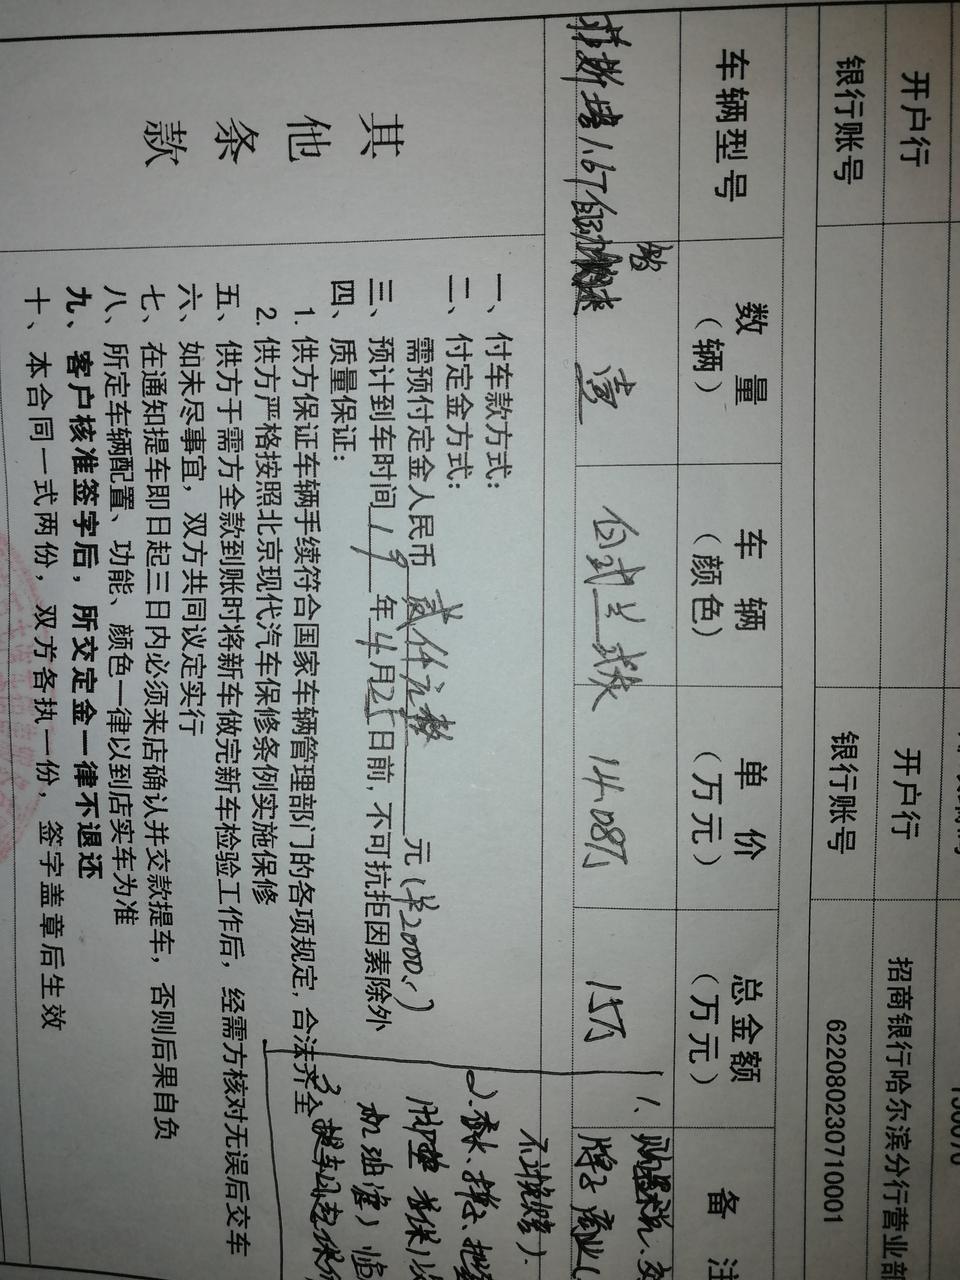 开户行
开户行
招商银行哈尔滨分行营业部
银行账号
银行账号
622080230710001
车辆型号
数量（辆）
车辆（颜色）
单价（万元）
总金额（万元）
备注
菲斯塔1.6T
壹
14.08万
15万
1、
不计免赔）.
其他条款
一、付车款方式：
二、付定金方式：
需预付定金人民币贰仟元整元（¥2000.）
三、预计到车时间19年4月25日前，不可抗拒因素除外
四、质量保证：
1. 供方保证车辆手续符合国家车辆管理部门的各项规定，合法齐全
2. 供方严格按照北京现代汽车保修条例实施保修
五、供方于需方全款到账时将新车做完新车检验工作后，经需方核对无误后交车
六、如未尽事宜，双方共同议定实行
七、在通知提车即日起三日内必须来店确认并交款提车，否则后果自负
八、所定车辆配置、功能、颜色一律以到店实车为准
九、客户核准签字后，所交定金一律不退还
十、本合同一式两份，双方各执一份，签字盖章后生效